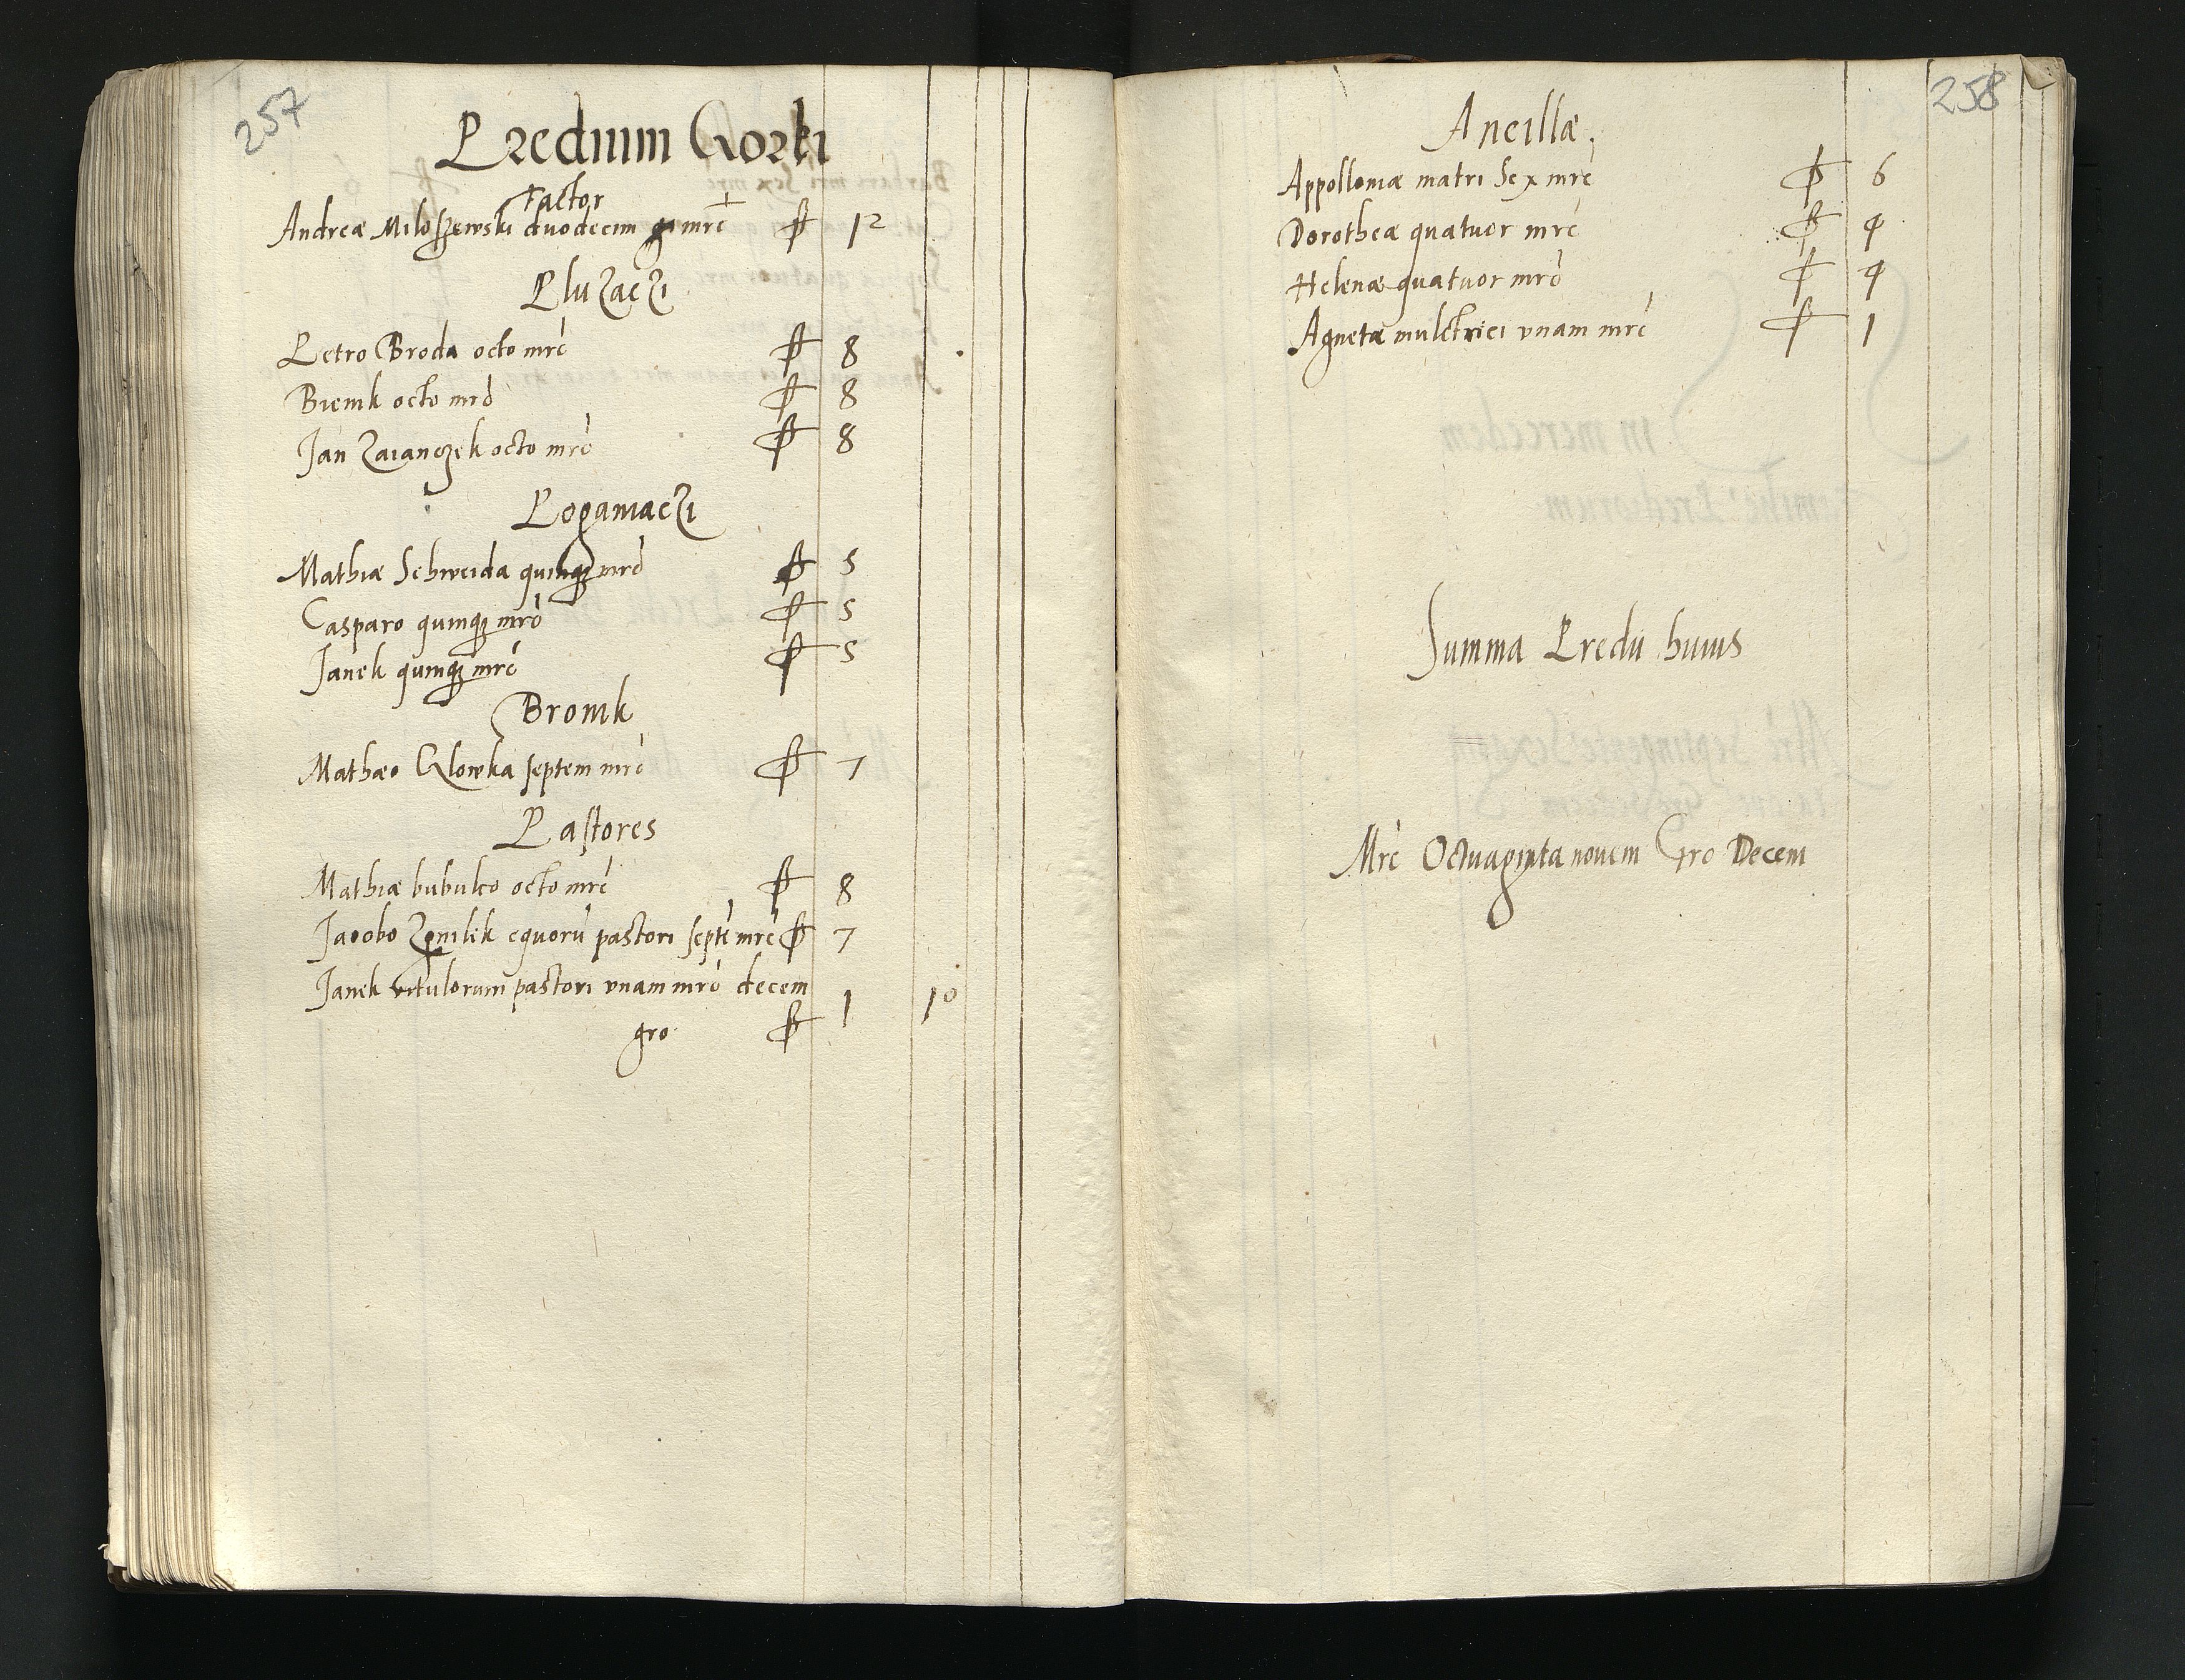 257
Predium Gorki
Factor
Andreæ Miloszewski duodecim mrc ₶ 12
Pluzaczi
Petro Broda octo mrc ₶ 8
Bienik octo mrc ₶ 8
Jan Zaianczek octo mrc ₶ 8
Poganiaczi
Mathiæ Schweida quinqꝫ mrc ₶ 5
Casparo quinqꝫ mrc ₶ 5
Janek quinqꝫ mrc ₶ 5
Bronik
Mathæo Glowka septem mrc ₶ 7
Pastores
Mathiæ bubulco octo mrc ₶ 8
Jacobo equorū pastori septē mrc ₶ 7
Janek vitulorum pastori vnam mrc decem
gro ₶ 1 10
258
Ancillæ.
Appolloniæ matri Sex mrc ₶ 6
Dorotheæ quatuor mrc ₶ 4
Helenæ quatuor mrc ₶ 4
Agnetæ mulctrici vnam mrc ₶ 1
Summa Predii huius
Mrc Octuaginta nouem Gro Decem